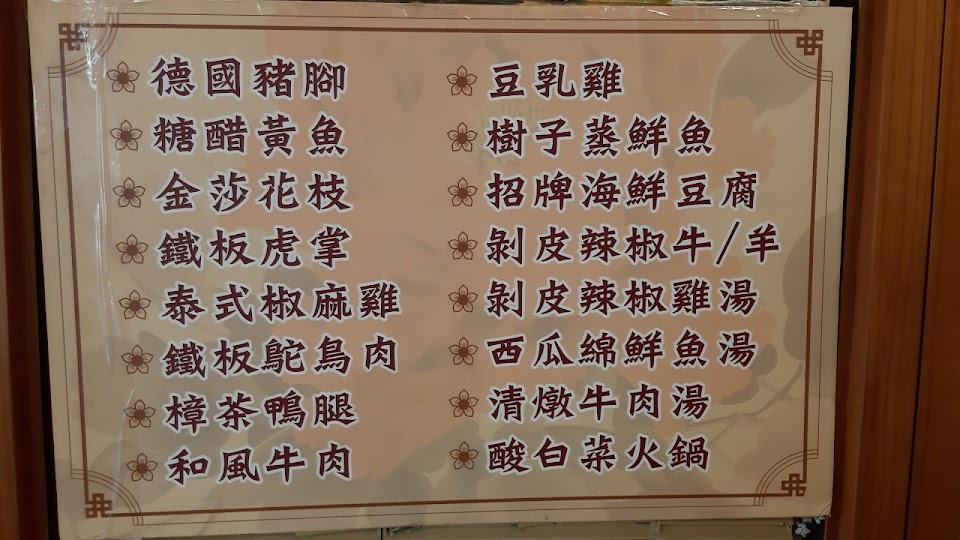 德國豬腳
糖醋黃魚
金莎花枝
鐵板虎掌
泰式椒麻雞
鐵板鴕鳥肉
樟茶鴨腿
和風牛肉
豆乳雞
樹子蒸鮮魚
招牌海鮮豆腐
剝皮辣椒牛/羊
剝皮辣椒雞湯
西瓜綿鮮魚湯
清燉牛肉湯
酸白菜火鍋